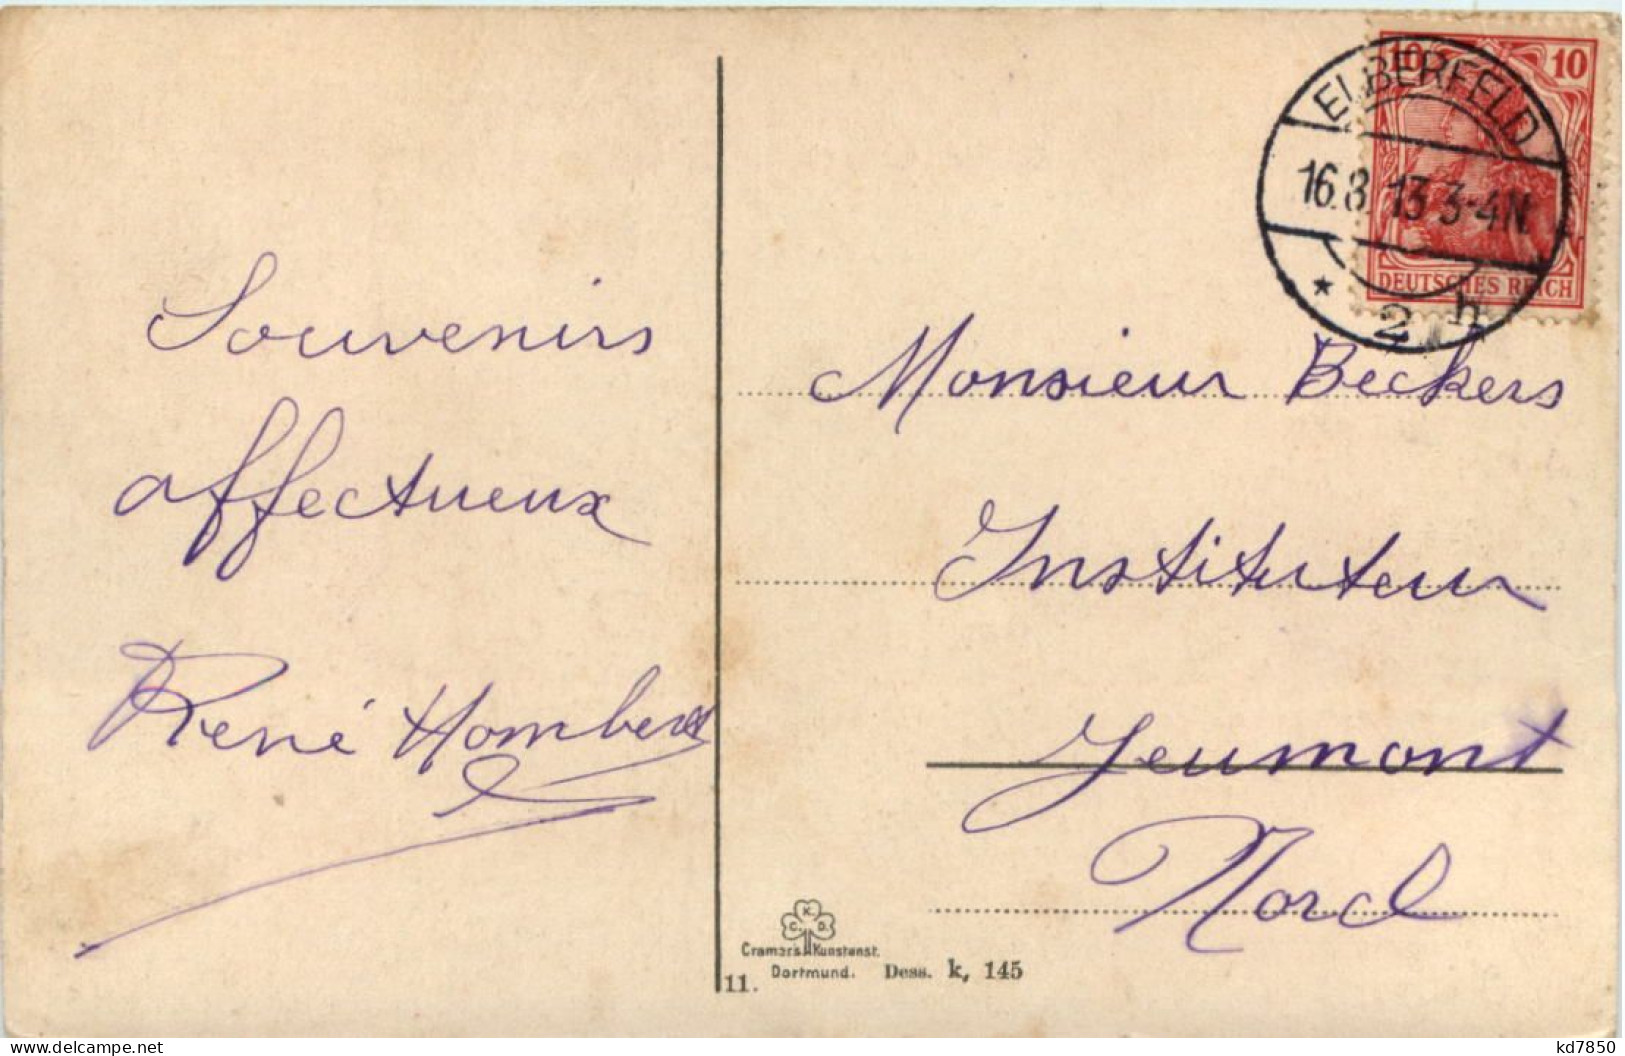 Souvenirs
affectueux
René Hombert
10 10
ELBERFELD
16.8.13 3-4N.
* 2 h
DEUTSCHES REICH
Monsieur Beckers
Instituteur
Jeumont
Nord
C. K. D.
Cramers Kunstanst.
Dortmund.
Dess. k, 145
11.
delcampe.net
kd7850